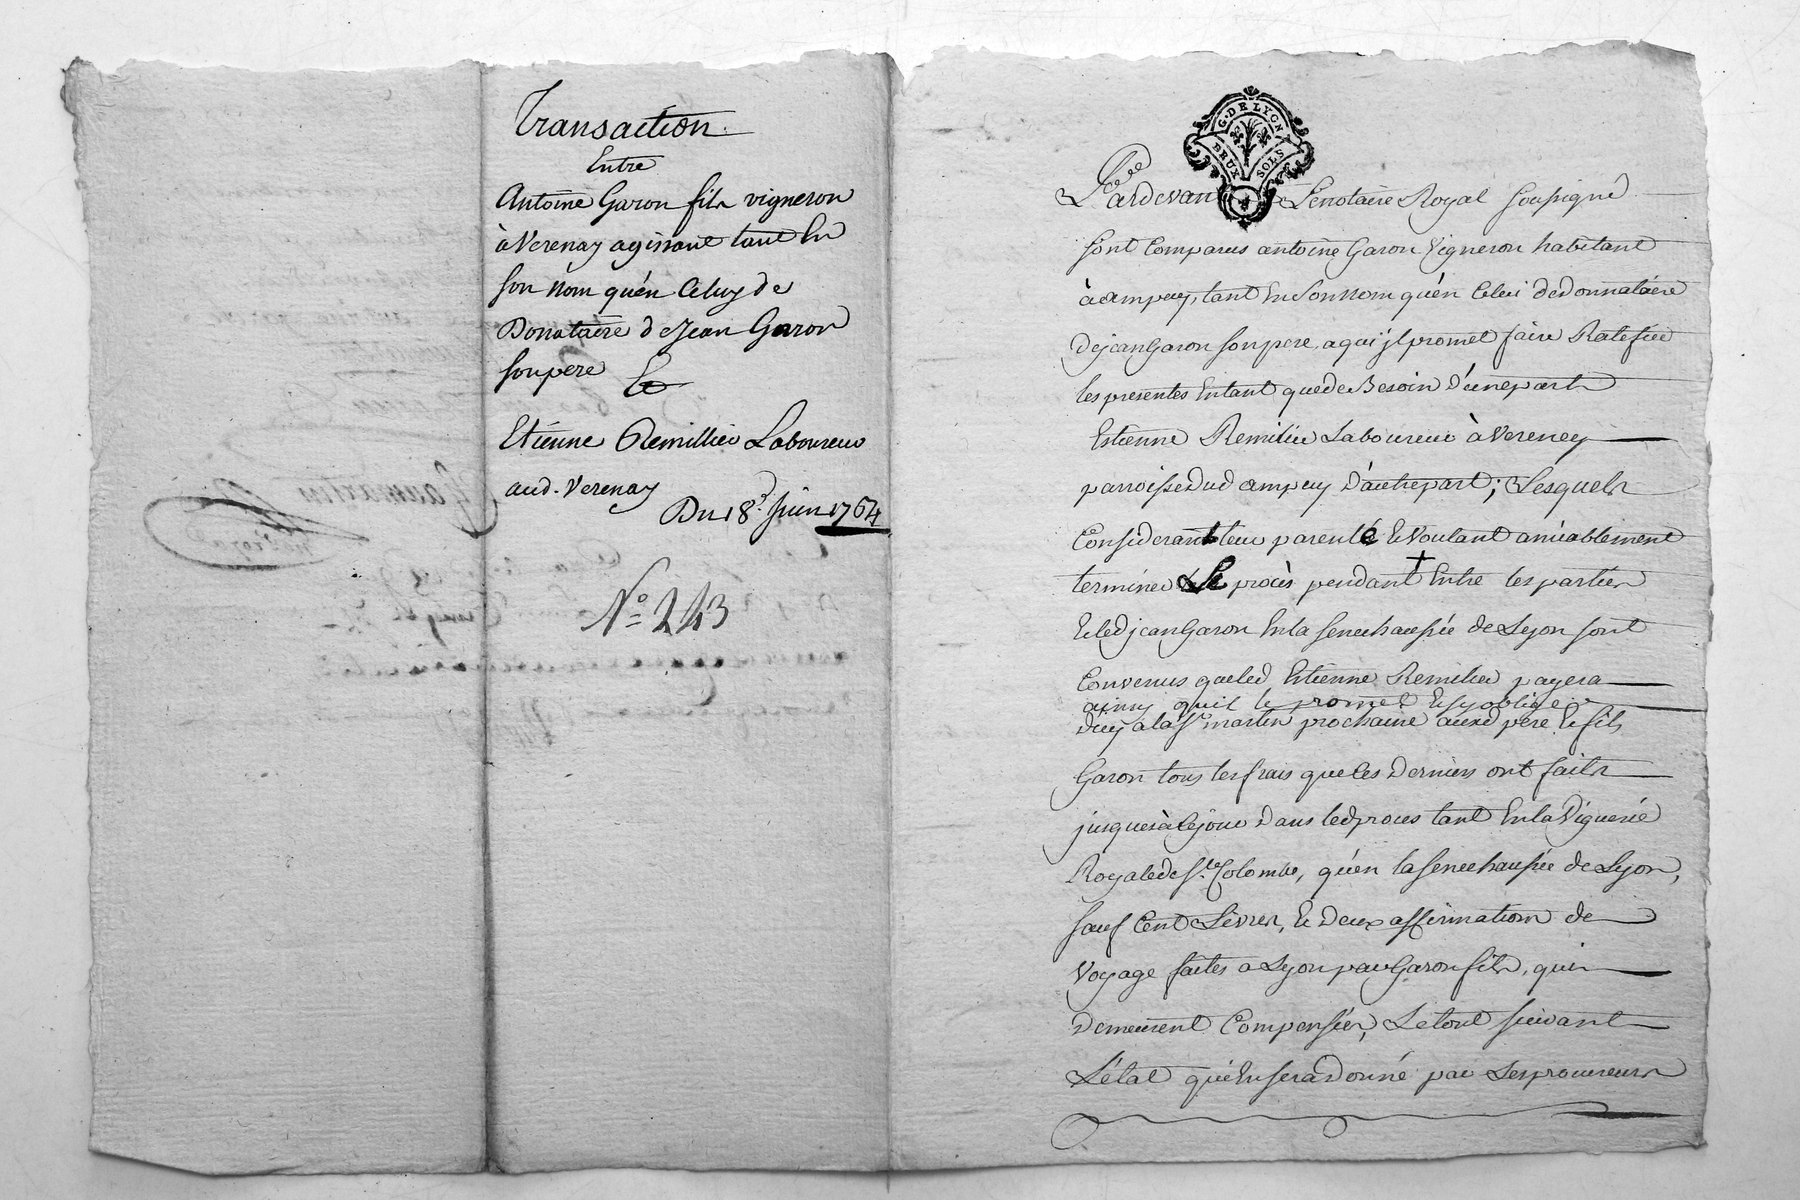 Transaction.
Entre
Antoine Garon fils vigneron
à Verenay agissant tant En
son nom qu'én Celuy de
Donataire de Jean Garon
son pere Et
Etienne Remillier Laboureur
aud. Verenay
Du 18.e Juin 1764
N.o 243
G. DE LYON
DEUX SOLS
Pardevant Le notaire Royal soussigné
sont Comparus antoine Garon Vigneron habitant
à ampuy, tant En son nom qu'én Celui de donnataire
de jean Garon son pere, a qui jl promet faire Ratefier
les presentes En tant que de Besoin d'une part
Estienne Remilier Laboureur à Vereney
parroisse dud ampuy d'autre part; Lesquels
Considerant leur parenté Et Voulant amiablement
terminer Le procès pendant Entre les parties
Et led jean Garon En la senechaussée de Lyon sont
Convenus que led Estienne Remilier payera
ainsy quil le promet Et sy oblige
d'uy à la St martin prochaine auxd pere Et fils
Garon tous les frais que Ces derniers ont faits
jusques à Ce jour dans led proces tant En la Viguerie
Royale de Ste Colombe, qu'en la senechaussée de Lyon,
sauf Cent Livres, Et deux affirmations de
Voyage faites a Lyon par Garon fils, qui
demeurent Compensées, Le tout suivant
L'état qui En sera donné par Les procureurs